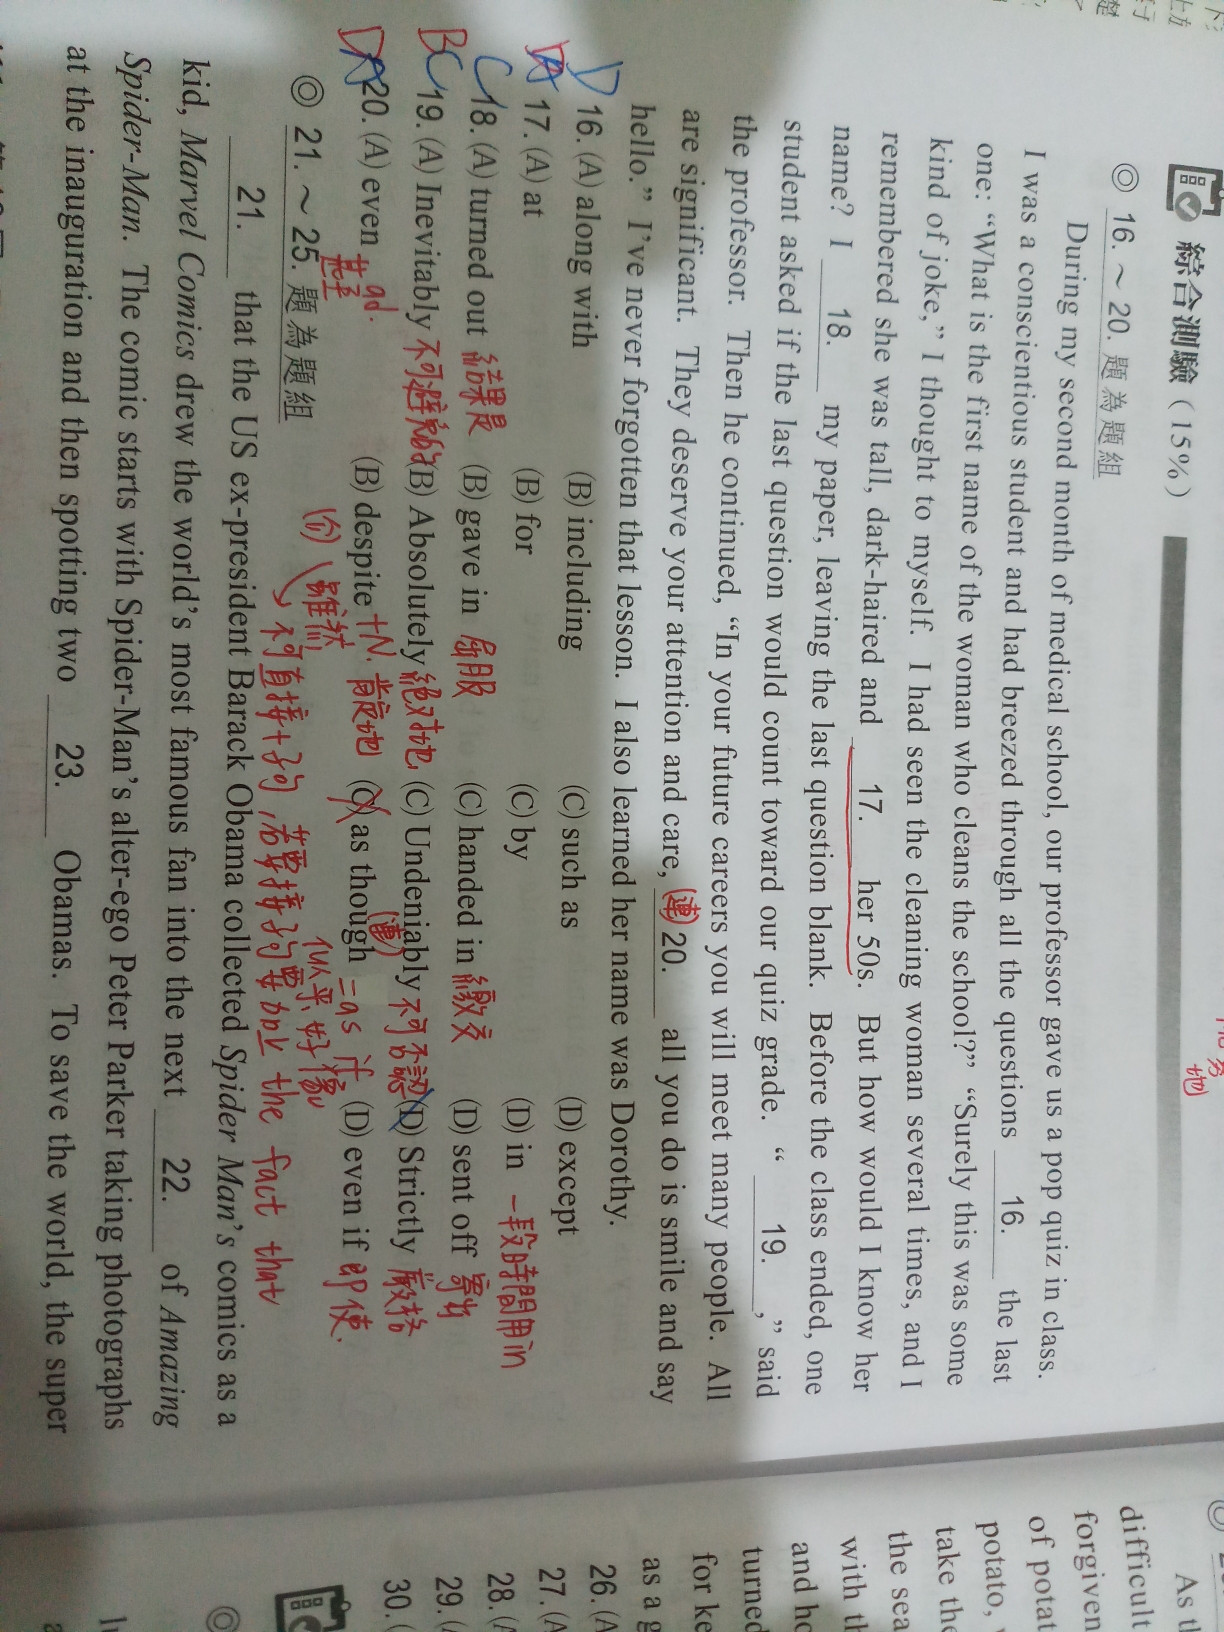 綜合測驗（15%）
◎ 16.～20. 題為題組
During my second month of medical school, our professor gave us a pop quiz in class.
I was a conscientious student and had breezed through all the questions 16. the last
one: “What is the first name of the woman who cleans the school?” “Surely this was some
kind of joke,” I thought to myself. I had seen the cleaning woman several times, and I
remembered she was tall, dark-haired and 17. her 50s. But how would I know her
name? I 18. my paper, leaving the last question blank. Before the class ended, one
student asked if the last question would count toward our quiz grade. “ 19. ,” said
the professor. Then he continued, “In your future careers you will meet many people. All
are significant. They deserve your attention and care, (連) 20. all you do is smile and say
hello.” I’ve never forgotten that lesson. I also learned her name was Dorothy.
D 16. (A) along with (B) including (C) such as (D) except
17. (A) at (B) for (C) by (D) in 一段時間用in
C 18. (A) turned out 結果是 (B) gave in 屈服 (C) handed in 繳交 (D) sent off 寄出
BC 19. (A) Inevitably 不可避免地 (B) Absolutely 絕對地 (C) Undeniably 不可否認 (D) Strictly 嚴格
DA 20. (A) even 甚至 ad. (B) despite +N. (C) as though (連) = as if (D) even if 即使.
(介) 雖然 似乎,好像
不可直接+子句,若要接子句要加上 the fact that
◎ 21.～25. 題為題組
21. that the US ex-president Barack Obama collected Spider Man’s comics as a
kid, Marvel Comics drew the world’s most famous fan into the next 22. of Amazing
Spider-Man. The comic starts with Spider-Man’s alter-ego Peter Parker taking photographs
at the inauguration and then spotting two 23. Obamas. To save the world, the super
地
As th
difficult
forgiven
of potat
potato,
take the
the sea
with th
and ho
turned
for ke
as a g
26. (A
27. (A
28. (A
29. (A
30. (
◎